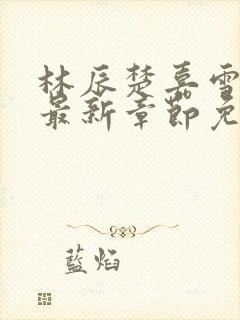 林辰楚嘉雪
最新章節免
藍焰